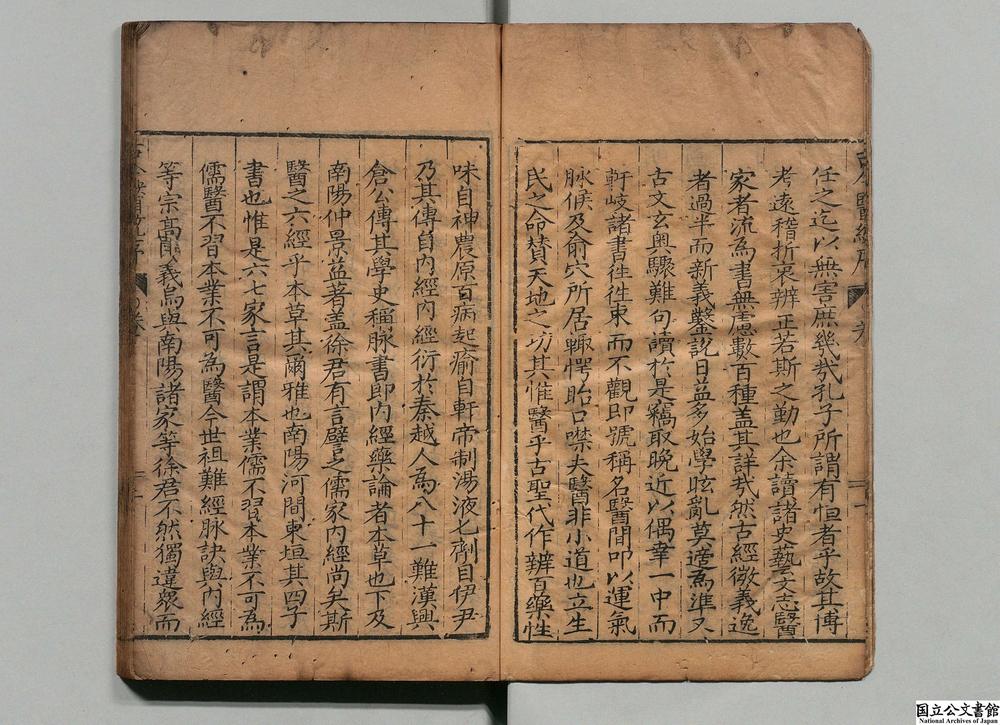 任之迄以無害庶幾哉孔子所謂有恒者乎故其博
考遠稽折衷辨正若斯之勤也余讀諸史藝文志醫
家者流為書無慮數百種盖其詳哉然古經微義逸
者過半而新義鑿說日益多始學眩亂莫適為準又
古文玄奥驟難句讀於是竊取晚近以偶幸一中而
軒岐諸書徃徃束而不觀即號稱名醫間叩以運氣
脉候及俞穴所居輙愕眙口噤夫醫非小道也立生
民之命賛天地之功其惟醫乎古聖代作辨百藥性
味自神農原百病起瘉自軒帝制湯液七劑自伊尹
乃其傳自内經内經衍於秦越人為八十一難漢興
倉公傳其學史稱脉書即内經藥論者本草也下及
南陽仲景益著盖徐君有言譬之儒家内經尚矣斯
醫之六經乎本草其爾雅也南陽河間東垣其四子
書也惟是六七家言是謂本業儒不習本業不可為
儒醫不習本業不可為醫今世祖難經脉訣與内經
等宗髙氏義烏與南陽諸家等徐君不然獨違衆而
国立公文書館
National Archives of Japan